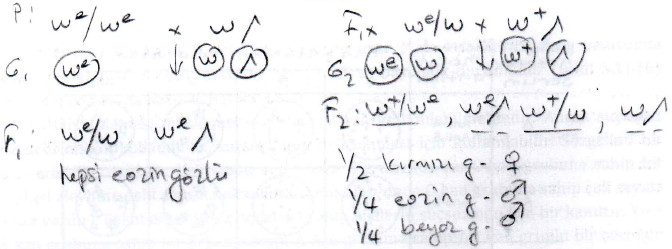 P: wᵉ/wᵉ x w/⁄\
G₁ wᵉ ↓ w ⁄\
F₁: wᵉ/w wᵉ ⁄\
hepsi eozin gözlü
F₁ x wᵉ/w x w⁺ ⁄\
G₂ wᵉ w ↓ w⁺ ⁄\
F₂: w⁺/wᵉ wᵉ⁄\ w⁺/w, w⁄\
1/2 kırmızı g. ♀
1/4 eozin g. ♂
1/4 beyaz g. ♂